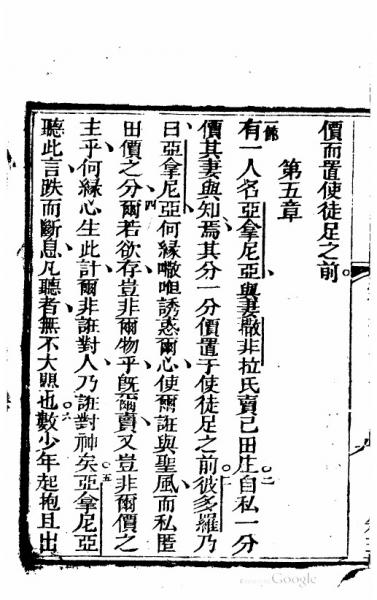 價而置使徒足之前
第五章
一節
有一人名亞拿尼亞與妻撒非拉氏賣己田庄自私一分
價其妻與知焉其分一分價置于使徒足之前彼多羅乃
曰亞拿尼亞何緣嗷呾誘惑爾心使爾誑與聖風而私匿
田價之分爾若欲存豈非爾物乎旣爾賣又豈非爾價之
主乎何緣心生此計爾非誑對人乃誑對神矣亞拿尼亞
聽此言跌而斷息凡聽者無不大愳也數少年起抱且出
二
三
四
五
六
Google